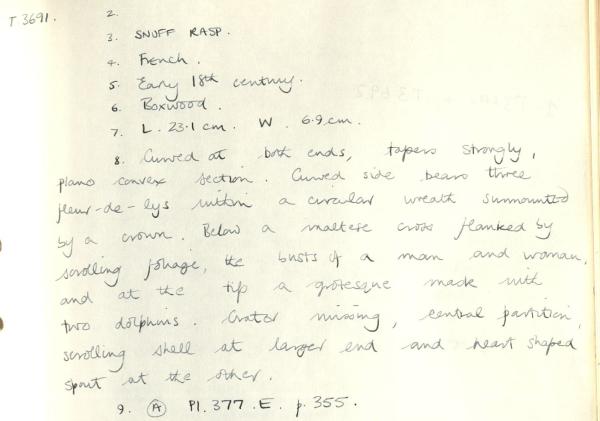 T 3691.
2.
3. SNUFF RASP.
4. French.
5. Early 18th century.
6. Boxwood.
7. L. 23.1 cm. W. 6.9 cm.
8. Curved at both ends, tapers strongly,
plano convex section. Curved side bears three
fleur-de-lys within a circular wreath surmounted
by a crown. Below a maltese cross flanked by
scrolling foliage, the busts of a man and woman,
and at the tip a grotesque mask with
two dolphins. Grater missing, central partition,
scrolling shell at larger end and heart shaped
spout at the other.
9. (A) Pl. 377. E. p. 355.